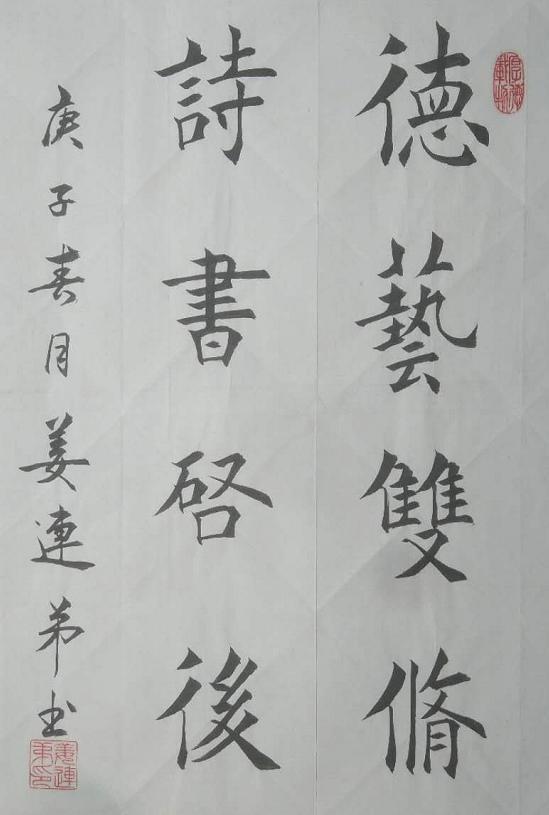 德藝雙脩
詩書啓後
庚子春月姜連弟书
姜連弟印